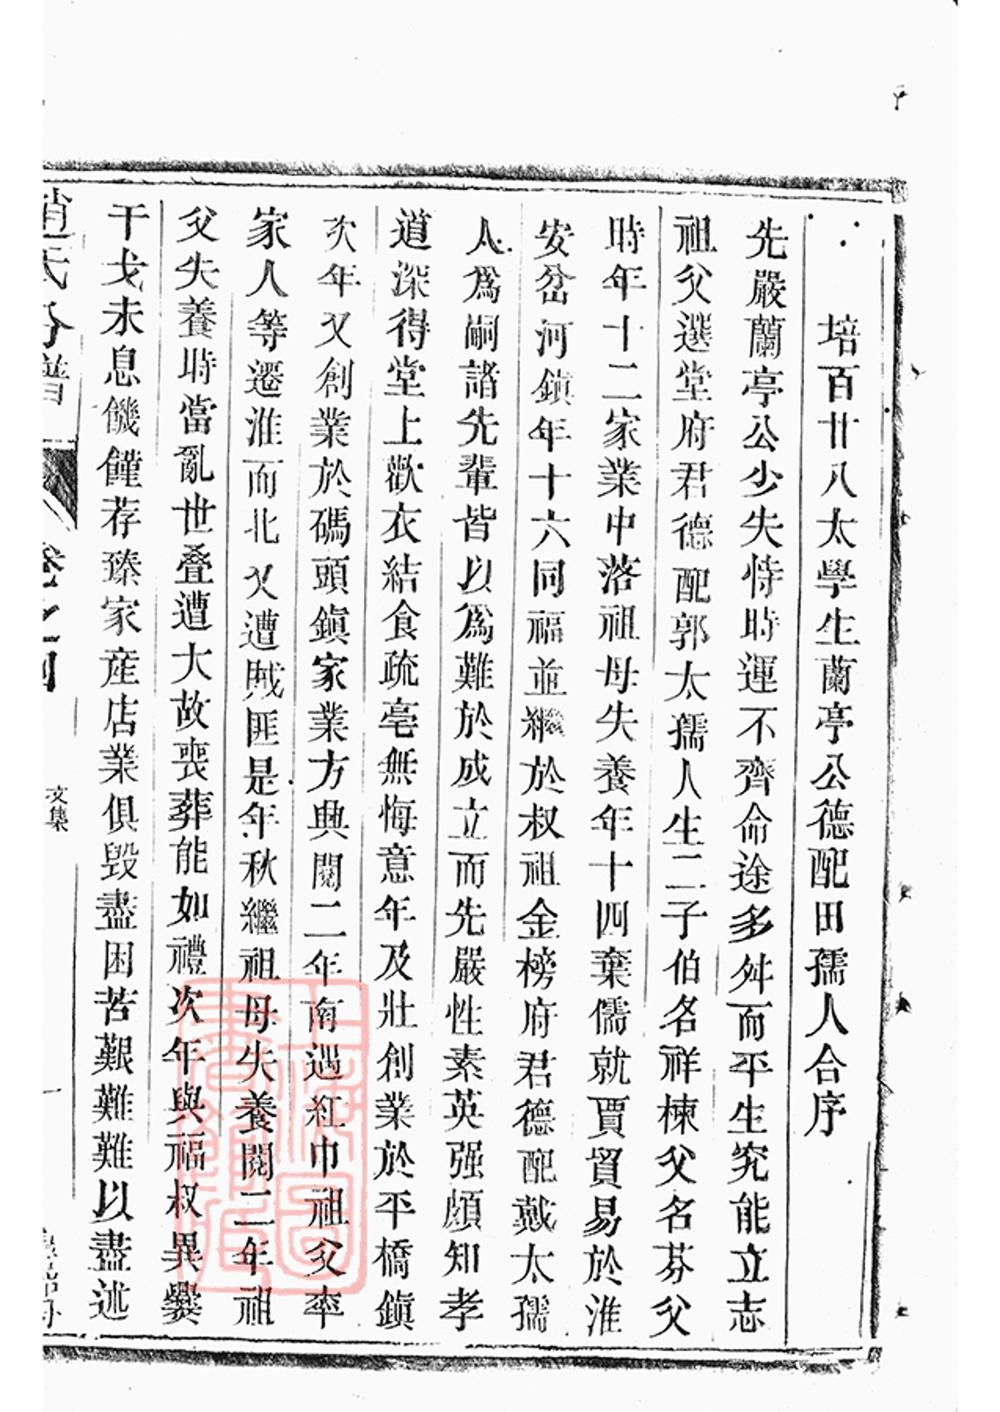 培百廿八太學生蘭亭公德配田孺人合序
先嚴蘭亭公少失恃時運不齊命途多舛而平生究能立志
祖父選堂府君德配郭太孺人生二子伯名祥棟父名芬父
時年十二家業中落祖母失養年十四棄儒就賈貿易於淮
安岔河鎮年十六同福並繼於叔祖金榜府君德配戴太孺
人爲嗣諸先輩皆以爲難於成立而先嚴性素英强頗知孝
道深得堂上歡衣結食疏亳無悔意年及壯創業於平橋鎮
次年又創業於碼頭鎮家業方興閱二年南遇紅巾祖父率
家人等遷淮而北又遭賊匪是年秋繼祖母失養閱二年祖
父失養時當亂世叠遭大故喪葬能如禮次年與福叔異爨
干戈未息饑饉荐臻家産店業俱毀盡困苦艱難難以盡述
趙氏宗譜
卷之四
文集
一